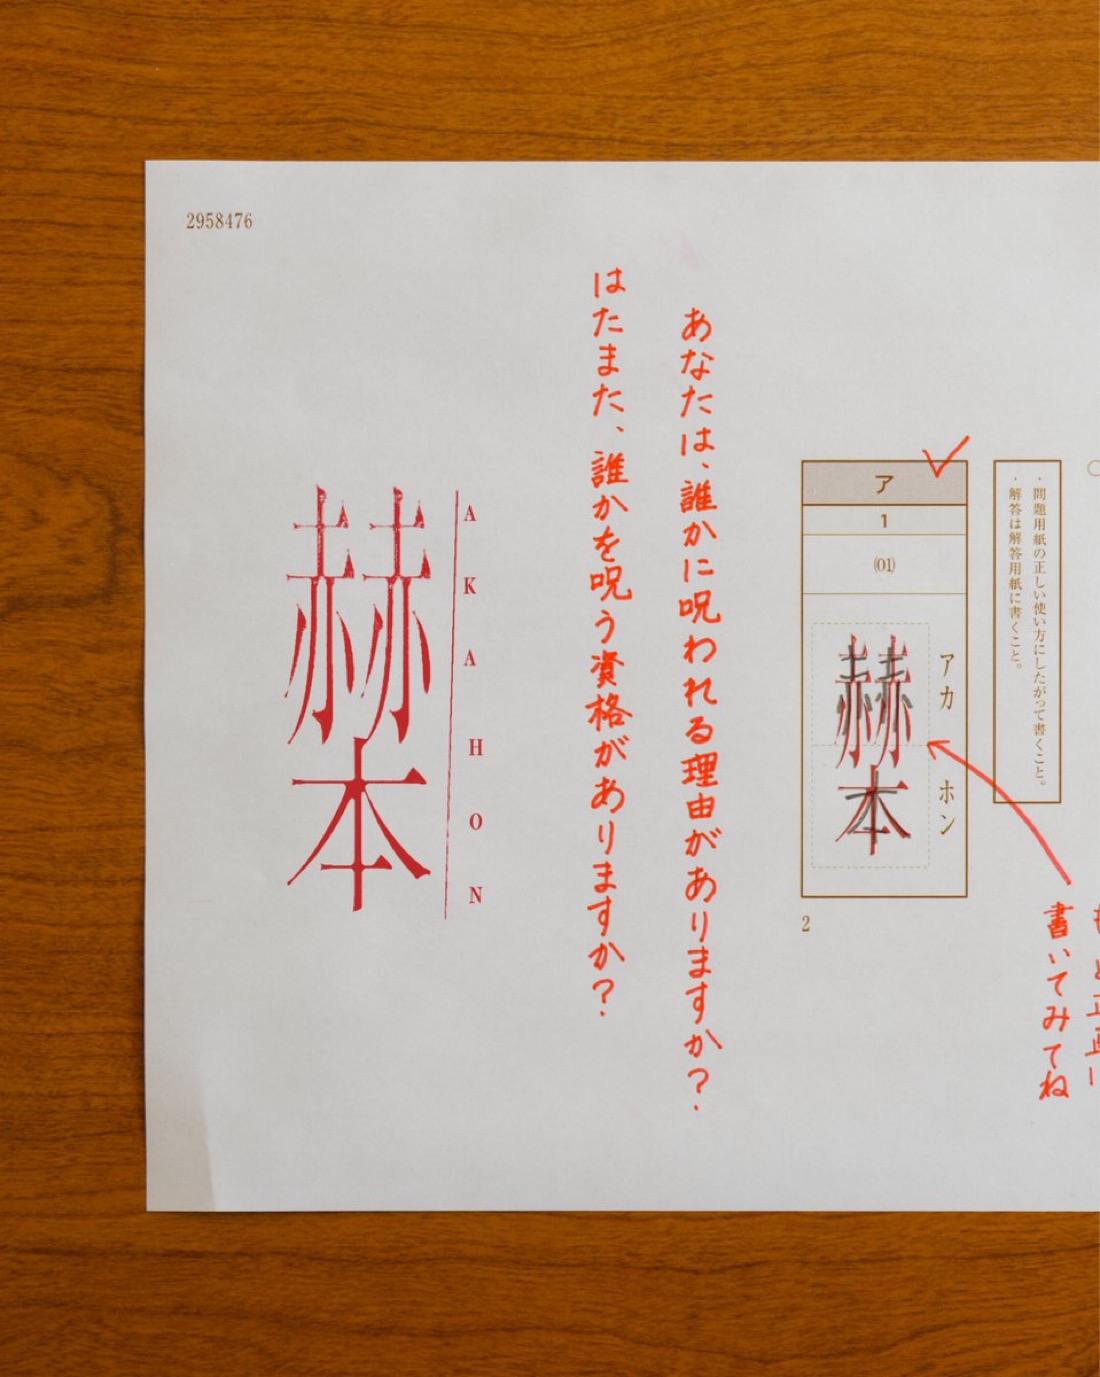 2958476
・問題用紙の正しい使い方にしたがって書くこと。
・解答は解答用紙に書くこと。
書いてみてね
ア
1
(01)
アカ ホン
赫本
2
あなたは、誰かに呪われる理由がありますか?
はたまた、誰かを呪う資格がありますか?
AKAHON
赫本